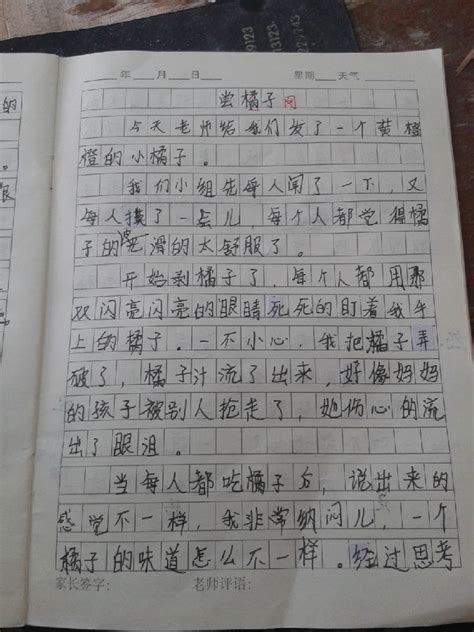 年 月 日 星期 天气
尝橘子
今天老师给我们发了一个黄橙
橙的小橘子。
我们小组先每人闻了一下，又
每人摸了一会儿 每个人都觉得橘
子的皮光滑的太舒服了。
开始剥橘子了，每个人都用那
双闪亮闪亮的眼睛死死的盯着我手
上的橘子。一不小心，我把橘子弄
破了，橘子汁流了出来，好像妈妈
的孩子被别人抢走了，她伤心的流
出了眼泪。
当每人都吃橘子后，说出来的
感觉不一样，我非常纳闷儿，一个
橘子的味道怎么不一样。经过思考
家长签字： 老师评语：